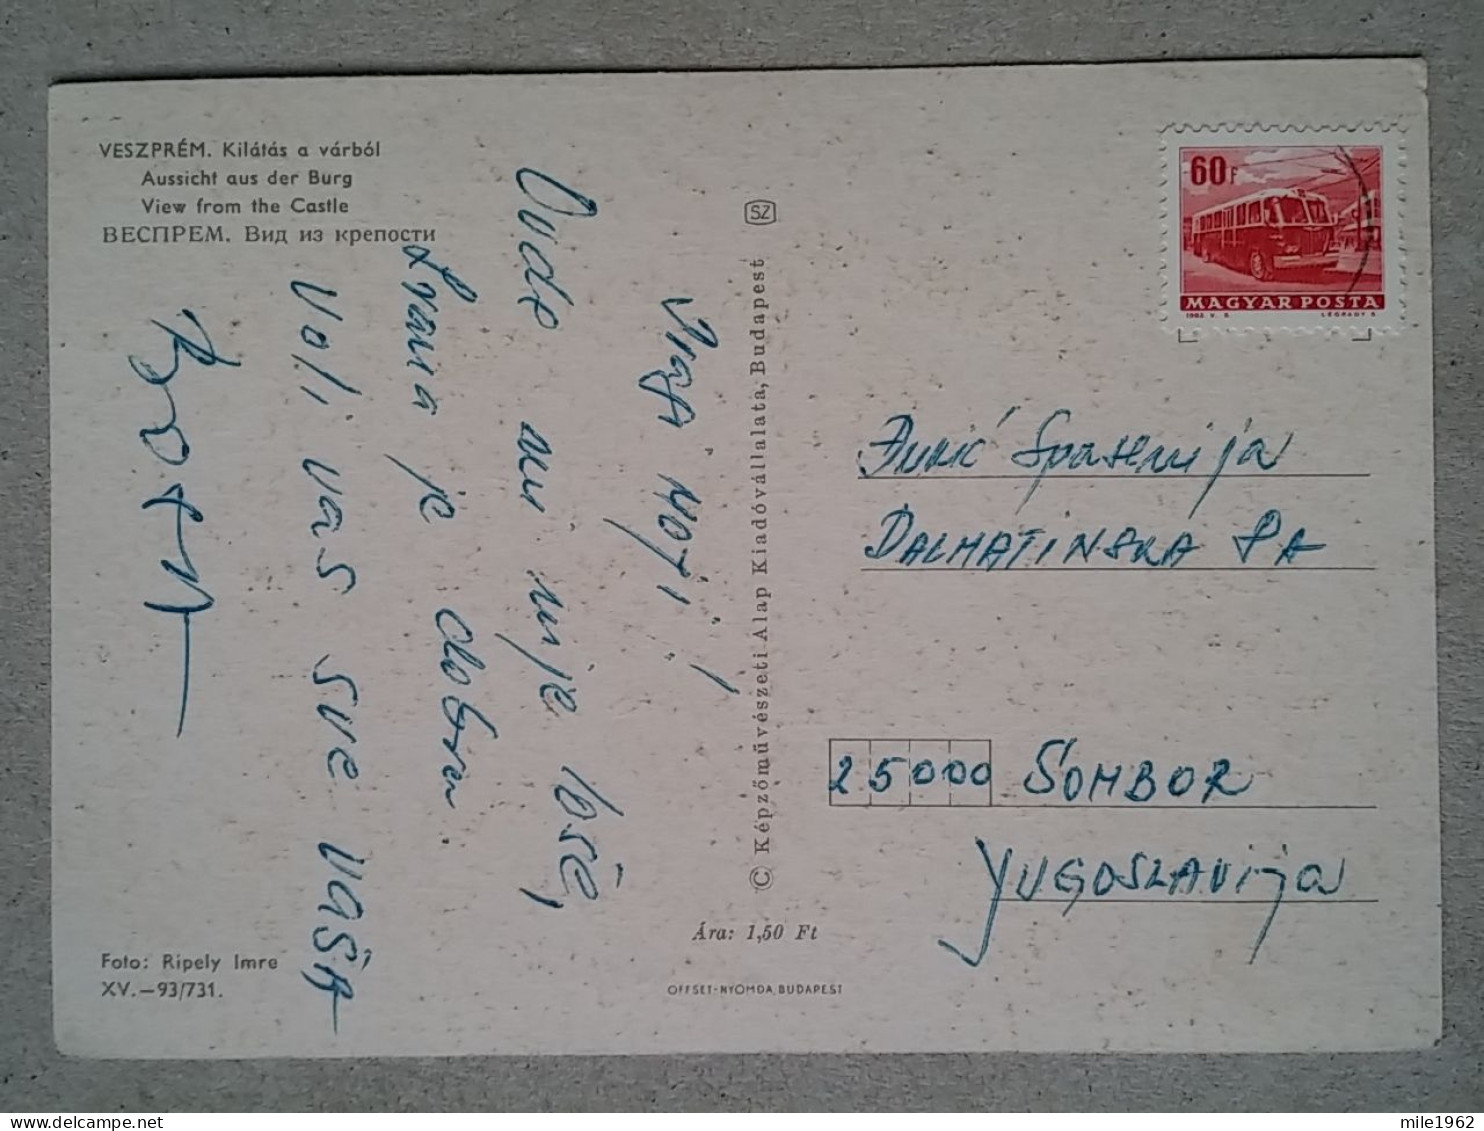 VESZPRÉM. Kilátás a várból
Aussicht aus der Burg
View from the Castle
ВЕСПРЕМ. Вид из крепости
Dragi moji!
Ovde mi nije loše,
hrana je dobra.
Voli vas sve vaša
SZ
© Képzőművészeti Alap Kiadóvállalata, Budapest
60F
MAGYAR POSTA
1963 V. S.
LÉGRÁDY S.
Đukić Spasenija
DALMATINSKA 8A
25000 SOMBOR
YUGOSLAVIJA
Foto: Ripely Imre
XV.—93/731.
Ára: 1,50 Ft
OFFSET-NYOMDA, BUDAPEST
mile1962